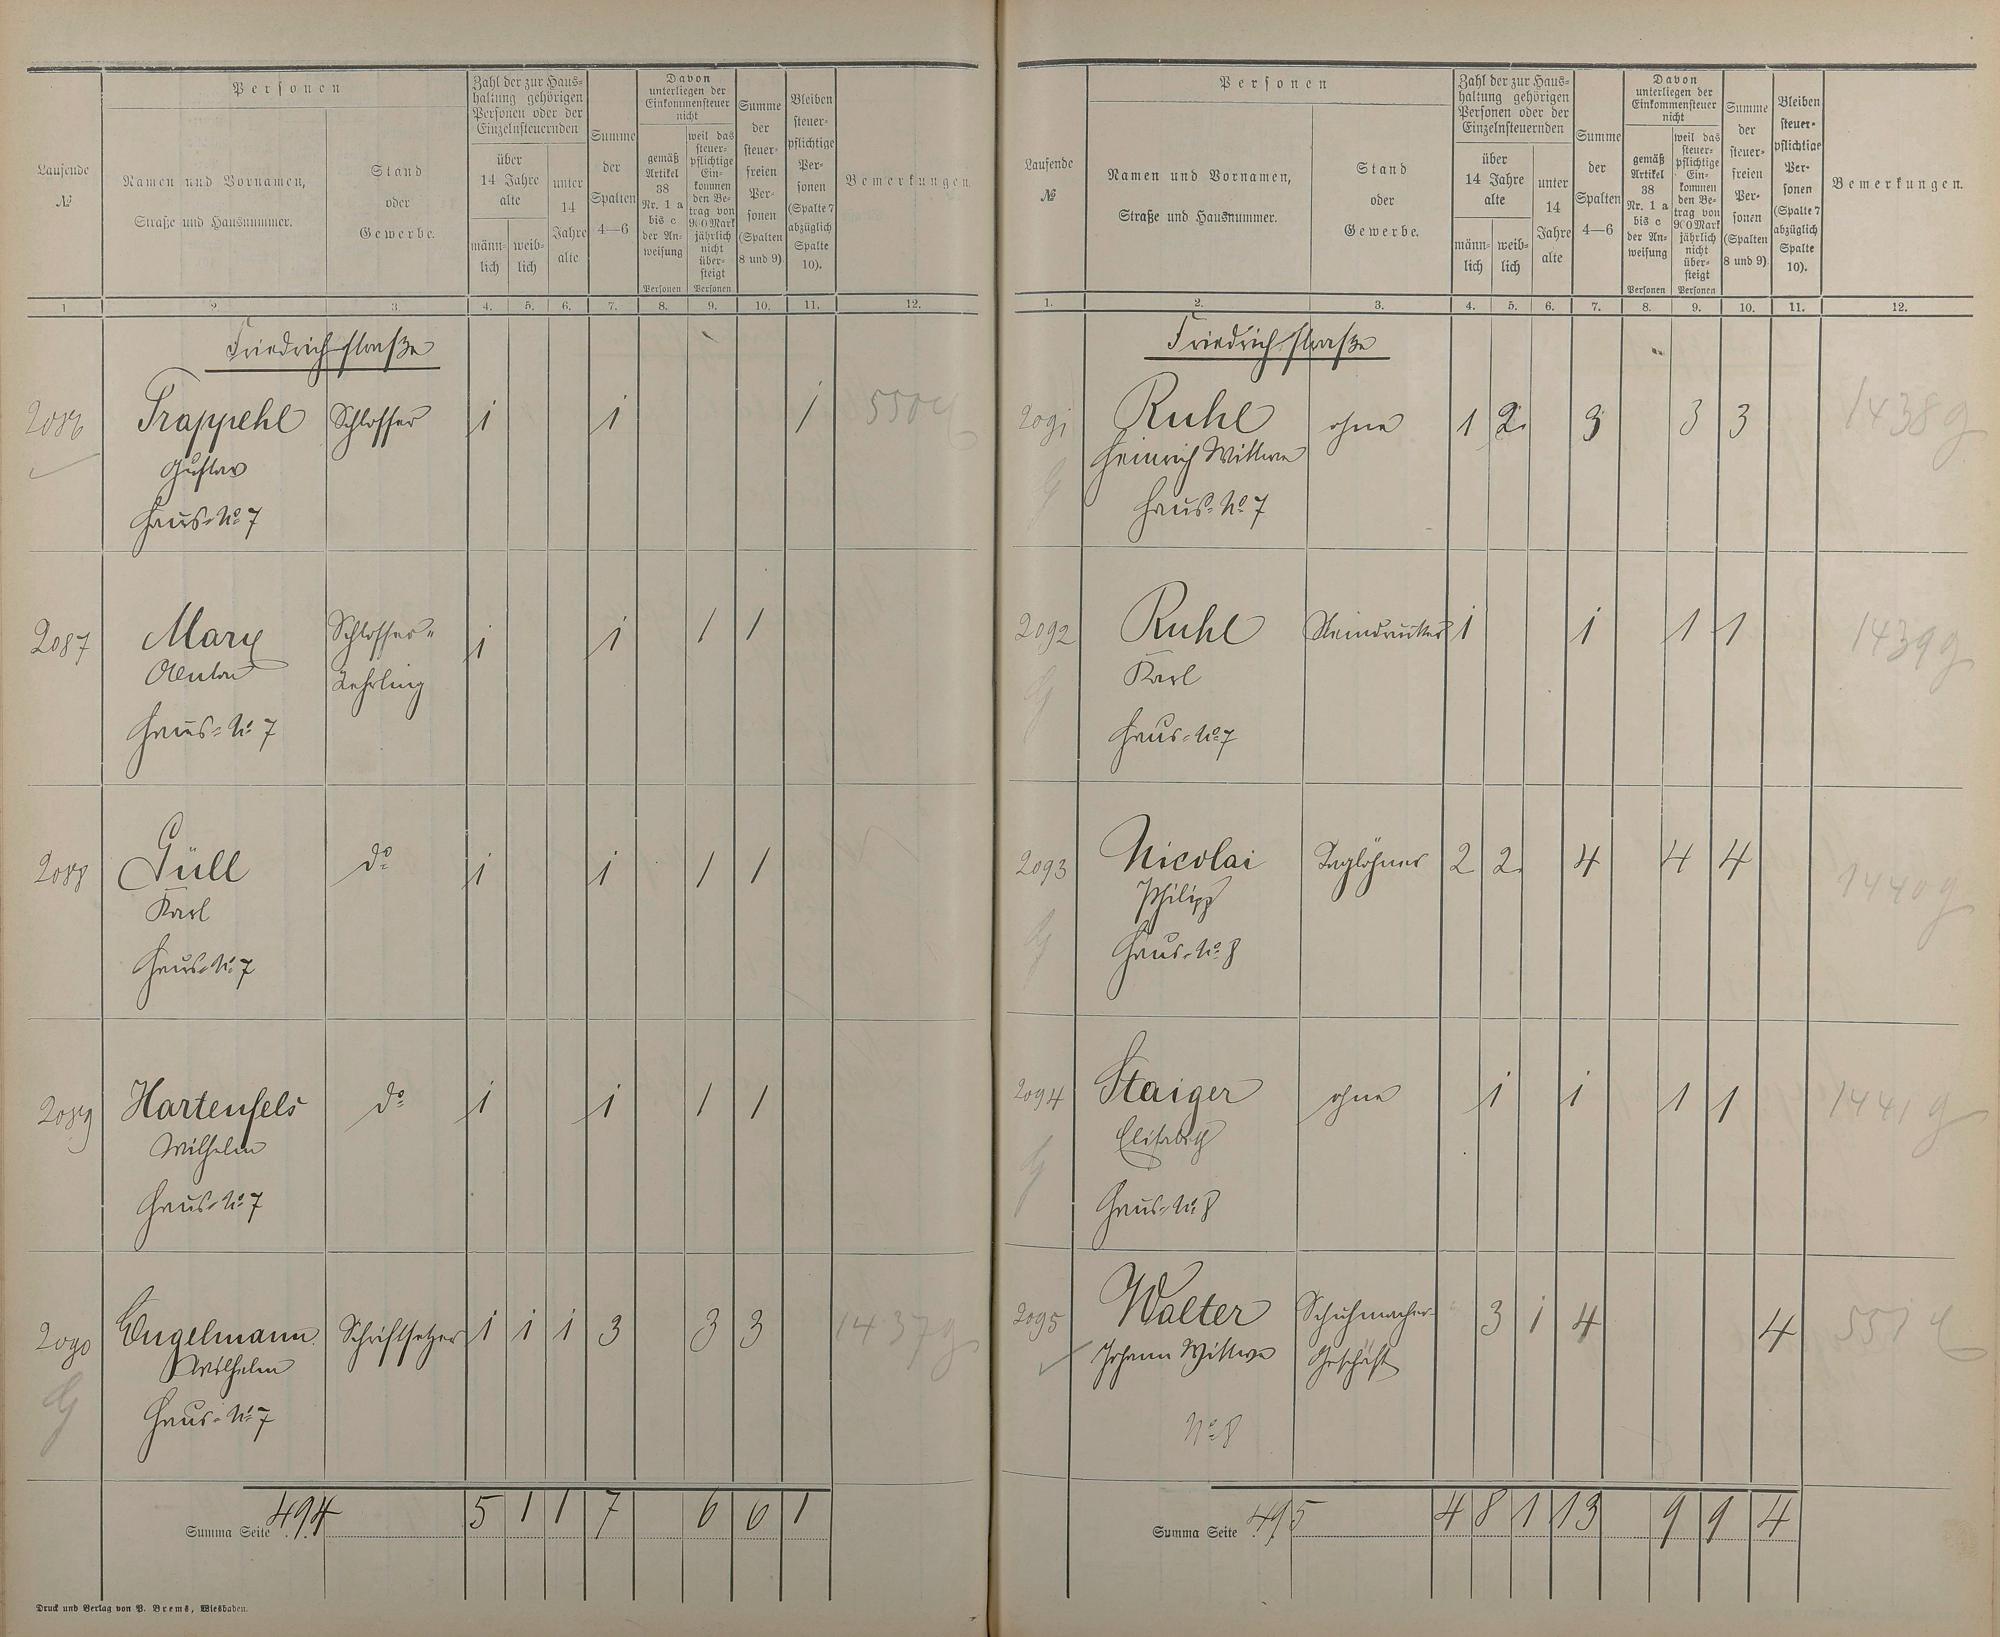 Laufende
№
Personen
Namen und Vornamen,
Straße und Hausnummer.
Stand
oder
Gewerbe.
Zahl der zur Haus-
haltung gehörigen
Personen oder der
Einzelnsteuernden
über
14 Jahre
alte
männ-
lich
weib-
lich
unter
14
Jahre
alte
Summe
der
Spalten
4—6
Davon
unterliegen der
Einkommensteuer
nicht
gemäß
Artikel
38
Nr. 1 a
bis c
der An-
weisung
Personen
weil das
steuer-
pflichtige
Ein-
kommen
den Be-
trag von
900 Mark
jährlich
nicht
über-
steigt
Personen
Summe
der
steuer-
freien
Per-
sonen
(Spalten
8 und 9)
Bleiben
steuer-
pflichtige
Per-
sonen
(Spalte 7
abzüglich
Spalte
10).
Bemerkungen.
1 2. 3. 4. 5. 6. 7. 8. 9. 10. 11. 12.
Friedrichstraße
2086 Trappehl Schlosser 1 1 1 550
Gustav
Haus-No 7
2087 Marx Schlosser-
Anton Lehrling 1 1 1 1
Haus-No 7
2088 Güll do 1 1 1 1
Karl
Haus-No 7
2089 Hartenfels do 1 1 1 1
Wilhelm
Haus-No 7
2090 Engelmann Schriftsetzer 1 1 1 3 3 3 1437 g
Wilhelm
Haus-No 7
Summa Seite 494 5 1 1 7 6 6 1
Druck und Verlag von P. Brems, Wiesbaden.
Laufende
№
Personen
Namen und Vornamen,
Straße und Hausnummer.
Stand
oder
Gewerbe.
Zahl der zur Haus-
haltung gehörigen
Personen oder der
Einzelnsteuernden
über
14 Jahre
alte
männ-
lich
weib-
lich
unter
14
Jahre
alte
Summe
der
Spalten
4—6
Davon
unterliegen der
Einkommensteuer
nicht
gemäß
Artikel
38
Nr. 1 a
bis c
der An-
weisung
Personen
weil das
steuer-
pflichtige
Ein-
kommen
den Be-
trag von
900 Mark
jährlich
nicht
über-
steigt
Personen
Summe
der
steuer-
freien
Per-
sonen
(Spalten
8 und 9)
Bleiben
steuer-
pflichtige
Per-
sonen
(Spalte 7
abzüglich
Spalte
10).
Bemerkungen.
1. 2. 3. 4. 5. 6. 7. 8. 9. 10. 11. 12.
Friedrichstraße
2091 Ruhl ohne 1 2 3 3 3 1438 g
Heinrich Wittwe
Haus-No 7
2092 Ruhl Steindrucker 1 1 1 1 1439 g
Karl
Haus-No 7
2093 Nicolai Taglöhner 2 2 4 4 4 1440 g
Philipp
Haus-No 8
2094 Staiger ohne 1 1 1 1 1441 g
Elisabeth
Haus-No 8
2095 Walter Schuhmacher- 3 1 4 4 551
Johann Wittwe Geschäft
No 8
Summa Seite 495 4 8 1 13 9 9 4